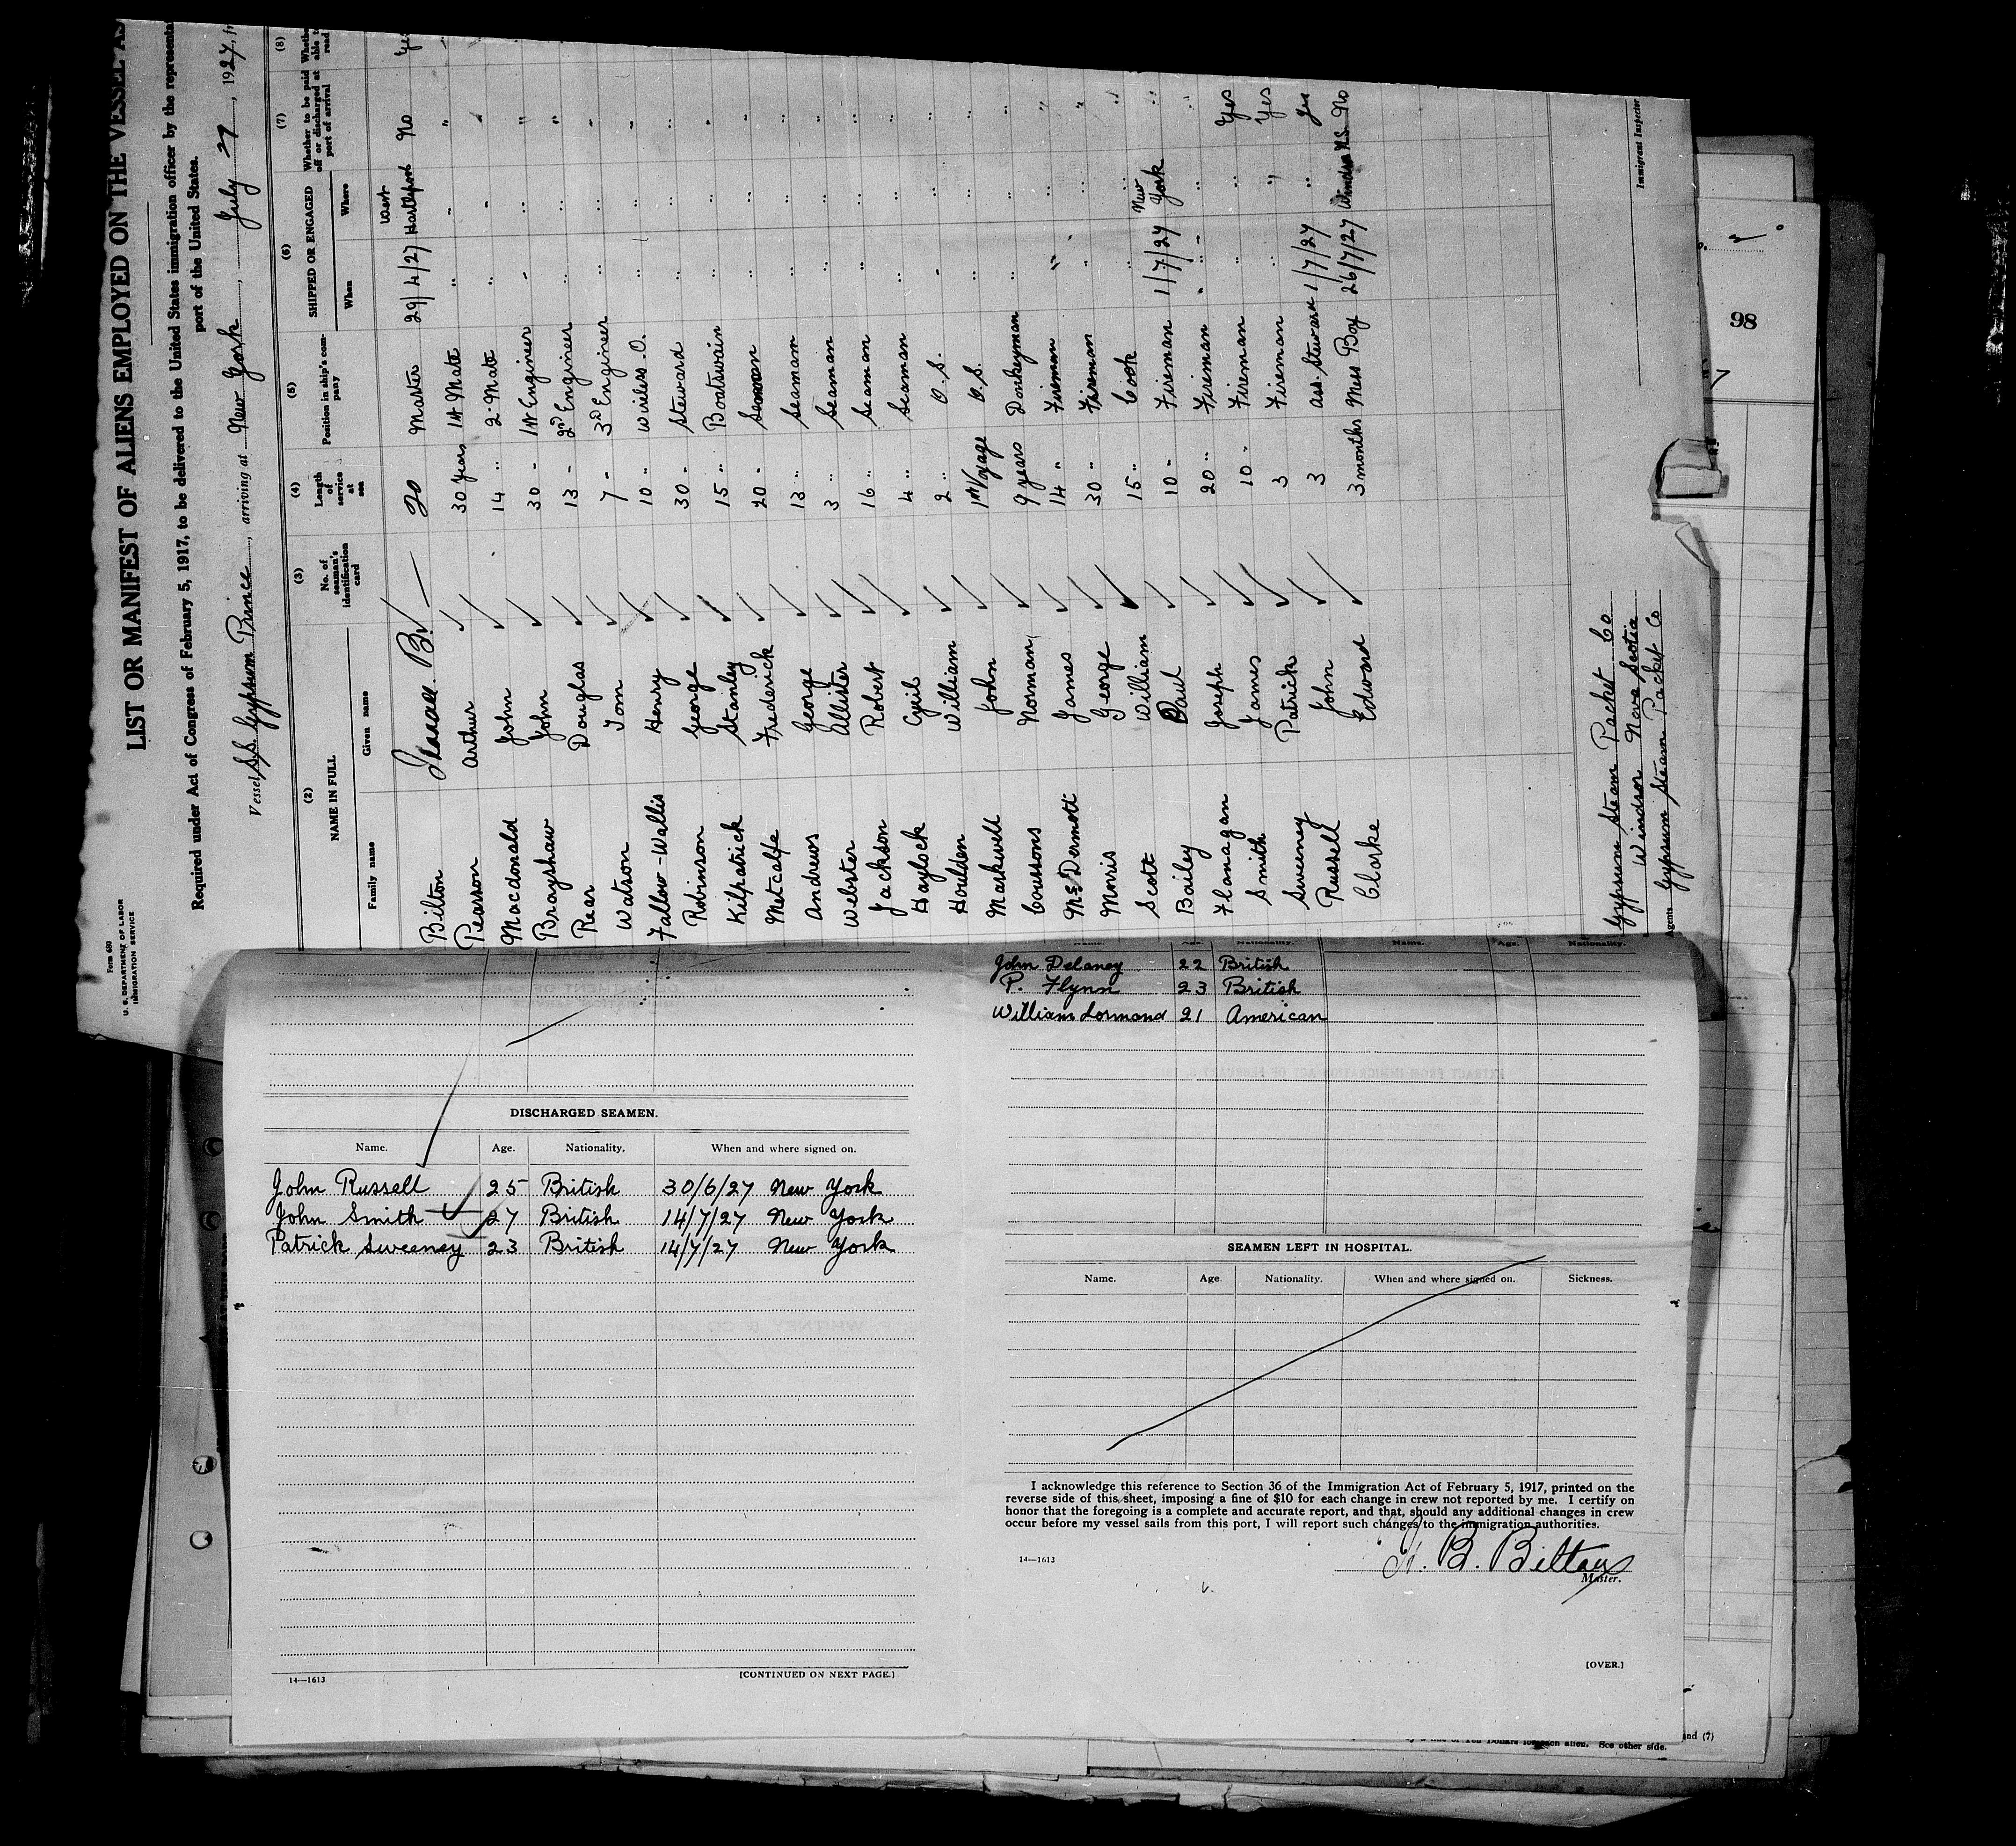 Form 680
U. S. DEPARTMENT OF LABOR
IMMIGRATION SERVICE
LIST OR MANIFEST OF ALIENS EMPLOYED ON THE VESSEL AS
Required under Act of Congress of February 5, 1917, to be delivered to the United States immigration officer by the representa
port of the United States.
Vessel SS. Gypsum Prince, arriving at New York, July 27, 1927, fr
(2) (3) (4) (5) (6) (7) (8)
NAME IN FULL
Family name Given name
No. of seaman's identification card
Length of service at sea
Position in ship's company
SHIPPED OR ENGAGED
When Where
Whether to be paid off or discharged at port of arrival
Whether able to read
Bilton B. 20 Master 29/4/27 West Hartlepool No Yes
Pearson Arthur 30 years 1st Mate " " "
Macdonald John 14 " 2 Mate " " "
Brayshaw John 30 " 1st Engineer " " "
Rear Douglas 13 " 2nd Engineer " " "
Watson Tom 7 " 3rd Engineer " " "
Fallow-Wallis Henry 10 " Wireless O. " " "
Robinson George 30 " Steward " " "
Kilpatrick Stanley 15 " Boatswain " " "
Metcalfe Frederick 20 " Seaman " " "
Andrews George 13 " Seaman " " "
Webster Allister 3 " Seaman " " "
Jackson Robert 16 " Seaman " " "
Haylock Cyril 4 " Seaman " " "
Houlden William 2 " O. S. " " "
Markwell John 1st Voyage O. S. " " "
Coussons Norman 9 years Donkeyman " " "
McDermott James 14 " Fireman " " "
Morris George 30 " Fireman " " "
Scott William 15 " Cook " " "
Bailey Paul 10 " Fireman 1/7/27 New York "
Flanagan Joseph 20 " Fireman " " "
Smith James 10 " Fireman " " Yes
Sweeney Patrick 3 Fireman " " Yes
Russell John 3 ass. Steward 1/7/27 " Yes
Clarke Edward 3 months Mess Boy 26/7/27 Windsor N.S. No
Gypsum Steam Packet Co
Windsor Nova Scotia
Agents Gypsum Steam Packet Co
Immigrant Inspector
98
7
DISCHARGED SEAMEN.
Name. Age. Nationality. When and where signed on.
John Russell 25 British 30/6/27 New York
John Smith 27 British 14/7/27 New York
Patrick Sweeney 23 British 14/7/27 New York
14—1613
[CONTINUED ON NEXT PAGE.]
Name. Age. Nationality. Name. Age. Nationality.
John Delaney 22 British
P. Flynn 23 British
William Lormond 21 American
SEAMEN LEFT IN HOSPITAL.
Name. Age. Nationality. When and where signed on. Sickness.
I acknowledge this reference to Section 36 of the Immigration Act of February 5, 1917, printed on the
reverse side of this sheet, imposing a fine of $10 for each change in crew not reported by me. I certify on
honor that the foregoing is a complete and accurate report, and that, should any additional changes in crew
occur before my vessel sails from this port, I will report such changes to the immigration authorities.
14—1613
B. Bilton
Master.
[OVER.]
and (7)
alien. See other side.